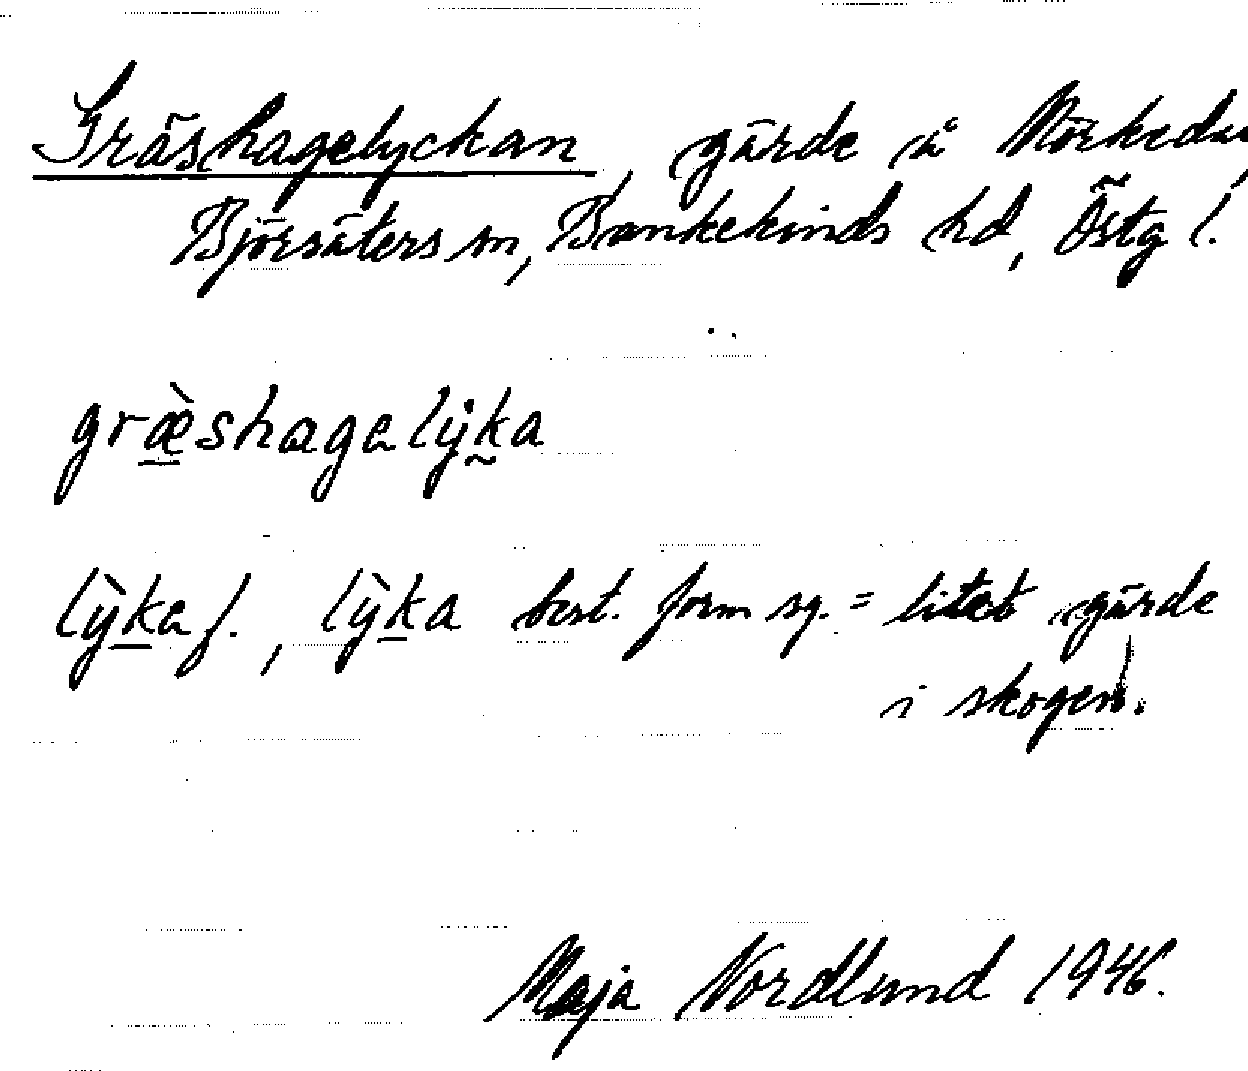 Gräshagelyckan, gärde å Mörkedal,
Björsäters sn, Bankekinds hd, Östg l.
græ̀shagelỳka
lỳka f., lỳka best. form sg. = litet gärde
i skogen.
Maja Nordlund 1946.